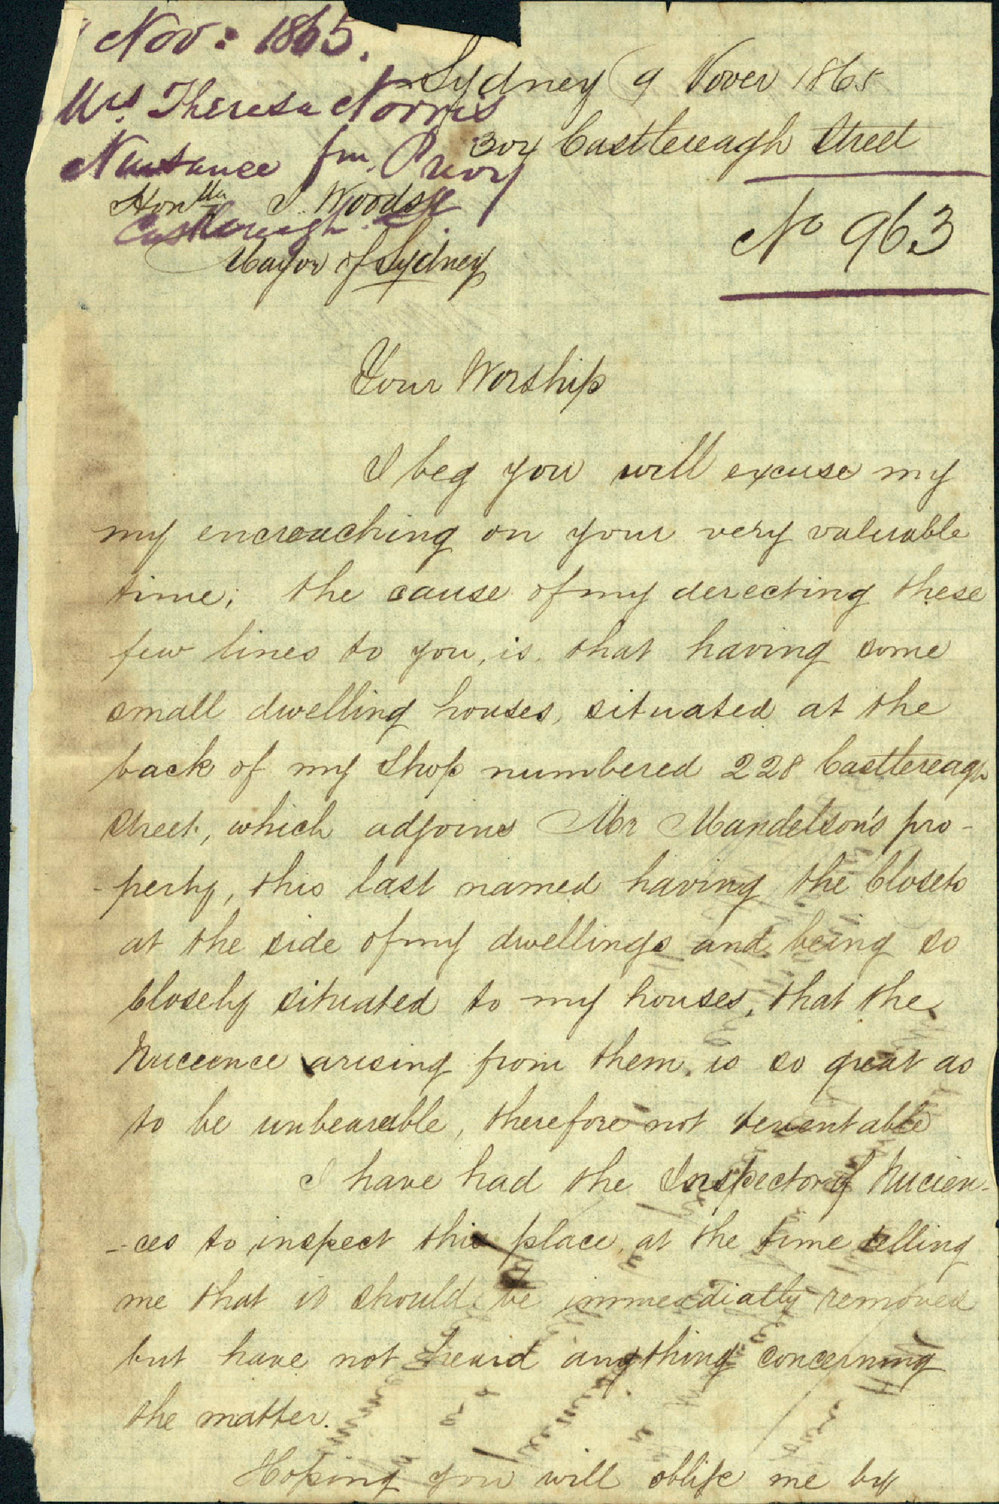 Nov: 1865.
Mrs Theresa Norris
Nuisance fm Privy
Castlereagh St
Sydney 9 Nover 1865
Castlereagh Street
No 963
Honble J. Woods
Mayor of Sydney
Your Worship
I beg you will excuse my
my encroaching on your very valuable
time; the cause of my derecting these
few lines to you, is, that having some
small dwelling houses, situated at the
back of my Shop numbered 228 Castlereagh
Street, which adjoins Mr Mandelson's pro-
-perty, this last named having the Closets
at the side of my dwellings and being so
closely situated to my houses, that the
Nucience arising from them, is so great as
to be unbearable, therefore not tenentable
I have had the Inspector of Nucien-
-ces to inspect this place, at the time telling
me that it should be immediatly removed
but have not heard anything concerning
the matter.
Hoping you will oblige me by